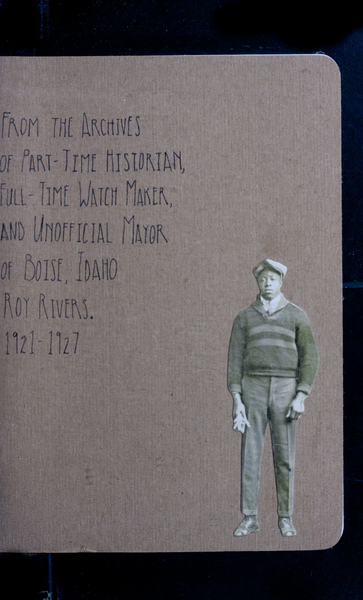 From the Archives
of Part-Time Historian,
Full-Time Watch Maker,
and Unofficial Mayor
of Boise, Idaho
Roy Rivers.
1921-1927